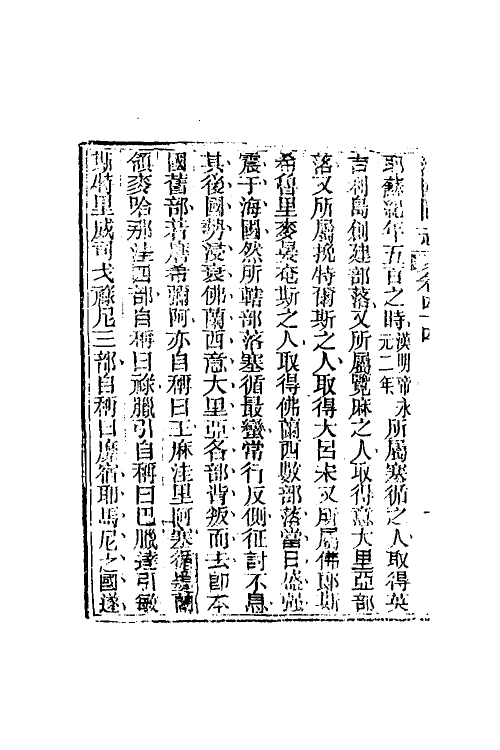 海國圖志 卷四十四
耶蘇紀年五百之時漢明帝永元二年所屬塞循之人取得英
吉利島創建部落又所屬覽麻之人取得意大里亞部
落又所屬挽特爾斯之人取得大呂宋又所屬佛郎斯
希魯里麥晏奄斯之人取得佛蘭西數部落當日盛強
震于海國然所轄部落塞循最蠻常行反側征討不息
其後國勢浸衰佛蘭西意大里亞各部背叛而去卽本
國舊部若唐希彌阿亦自稱曰王麻洼里阿塞循曷蘭
領麥哈那洼四部自稱曰祿臘引自稱曰巴臘達引敏
斯特里威司戈祿尼三部自稱曰磨宿耶馬尼之國遂